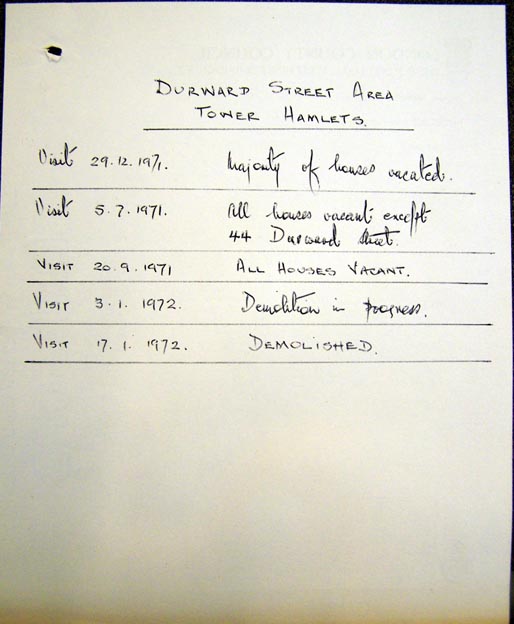 DURWARD STREET AREA
TOWER HAMLETS.
Visit 29.12.1971. Majority of houses vacated.
Visit 5.7.1971. All houses vacant except
44 Durward Street.
VISIT 20.9.1971 ALL HOUSES VACANT.
VISIT 3.1.1972. Demolition in progress.
VISIT 17.1.1972. DEMOLISHED.